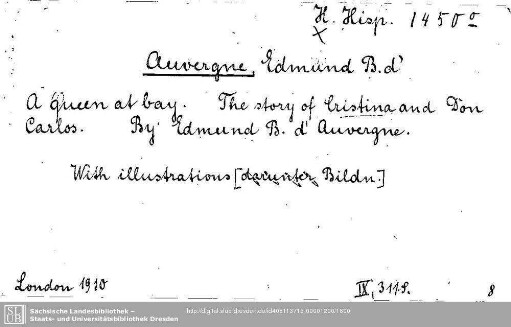 H. Hisp. 1450º
Auvergne, Edmund B. d'
A queen at bay. The story of Cristina and Don
Carlos. By Edmund B. d'Auvergne.
With illustrations [darunter Bildn.]
London 1910 IX, 311 S. 8
Sächsische Landesbibliothek –
Staats- und Universitätsbibliothek Dresden